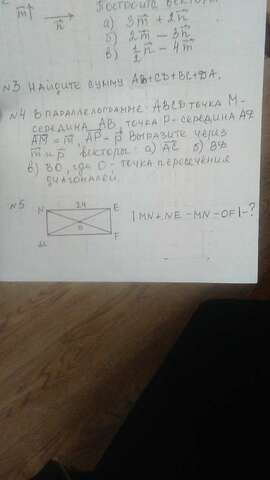 Постройте векторы
m
n
а) 3m + 2n
б) 2m - 3n
в) 1/2 n - 4m
№3 Найдите сумму AB+CD+BC+DA.
№4 В параллелограмме ABCD точка M-
середина AB, точка P-середина AD
AM = m, AP = p. Выразите через
m и p векторы: а) AC б) BD
в) BO, где O - точка пересечения
диагоналей.
№5
24
N E
|MN+NE -MN-OF|-?
O
M F